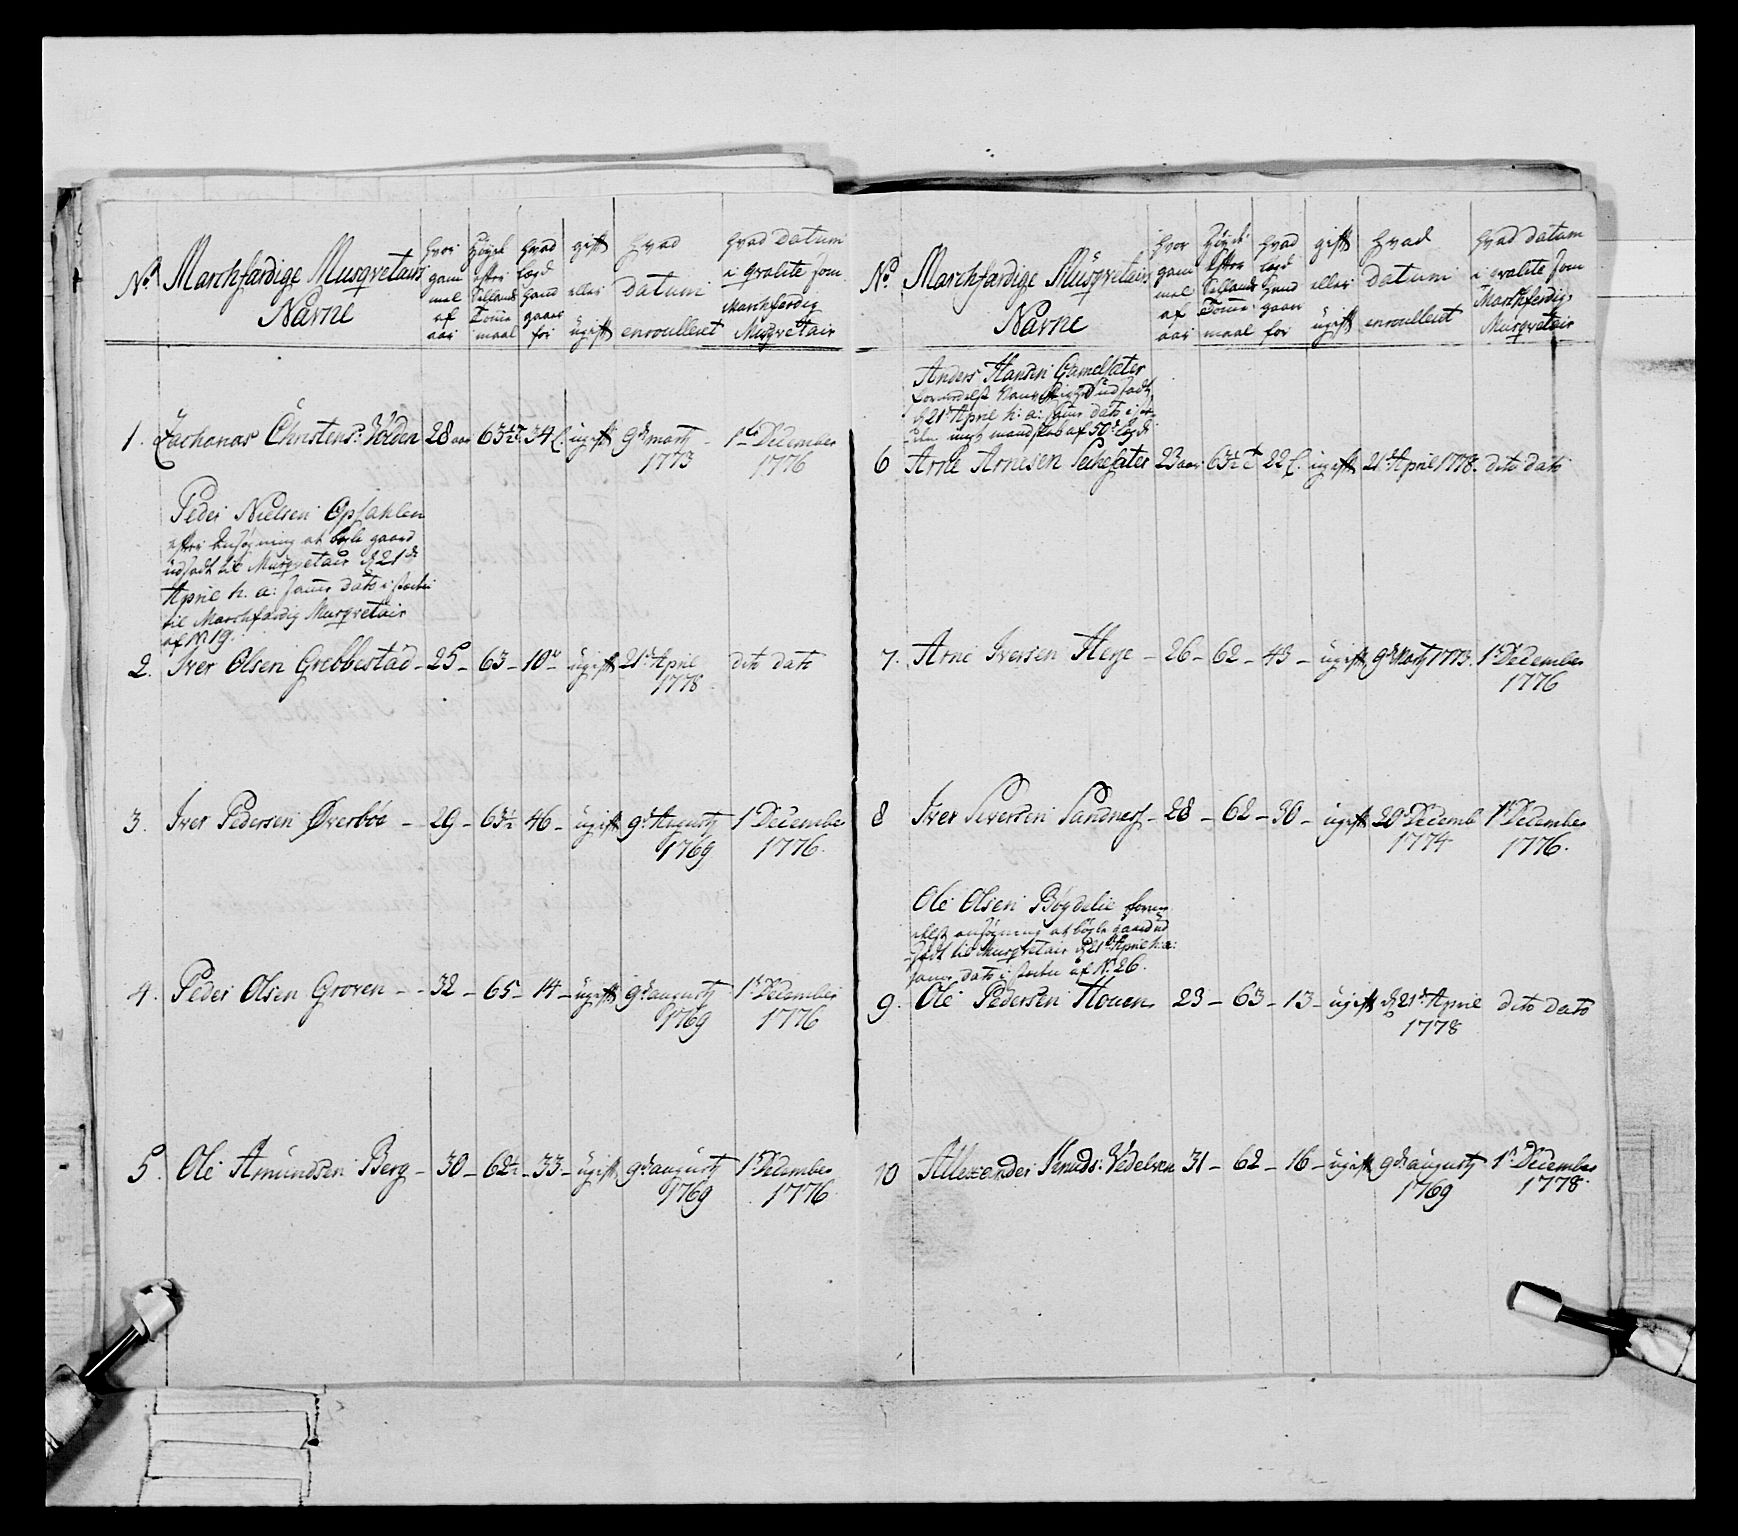 No
Marchfærdige Musqvetairs
Navne
hvor gam mel af aar
Höyde efter Sællands Tomme maal
hvad lægd hand gaaer for
gift eller ugift
hvad datum enroulleret
hvad datum i qvalite som Marchfærdig Musqvetair
1. Zacharias Christens: Volden 28 aar 63½ T 34 l. ugift 9de marty 1773 1te December 1776
Peder Nielsen Opsahlen
efter Ansögning at boele gaard
udsadt til Musqvetair d 21de
April h. a: samme dato i stæden
til Marchfærdig Musqvetair
af No 19.
2. Iver Olsen Grebbestad - 25 - 63 - 10 - ugift 21de April 1778 dito dato
3. Iver Pedersen Øverböe - 29 - 63½ 46 - ugift 9de Augusty 1769 1te December 1776.
4. Peder Olsen Groven - - 32 - 65 - 14 - ugift 9de augusty 1769 1te December 1776
5. Ole Amundsen Berg - 30 - 62½ - 33 - ugift 9de augusty 1769 1te December 1776
No
Marchfærdige Musqvetairs
Navne
hvor gam mel af aar
Höyde efter Sællands Tomme maal
hvad lægd hand gaaer for
gift eller ugift
hvad datum enroulleret
hvad datum i qvalite som Marchferdig Musqvetair
Anders Hansen Gamelsæter
formedelst udsadt
d 21de April h: a: samme dato i stæ-
den mandskab af 50de lægd
6 Arne Arnesen Sechesæter 23 aar 63½ T 22 l. ugift 21de April 1778. dito dato
7. Arne Iversen Heje - 26 - 62 - 43 - ugift 9de Marty 1773. 1te December 1776
8 Iver Siversen Sandnes - 28 - 62 - 30 - ugift 20de Decemb 1774 1te December 1776.
Ole Olsen Bøgdelie forme-
delst ansögning at böxle gaard ud-
sadt til Musqvetair d 21de April h: a:
samme dato i stæden af No 26.
9. Ole Pedersen Houen 23 - 63 - 13 - ugift d 21de April 1778 dito dato
10 Allexander Knuds: Vedelven 31 - 62 - 16 - ugift 9de augusty 1769 1te December 1778.